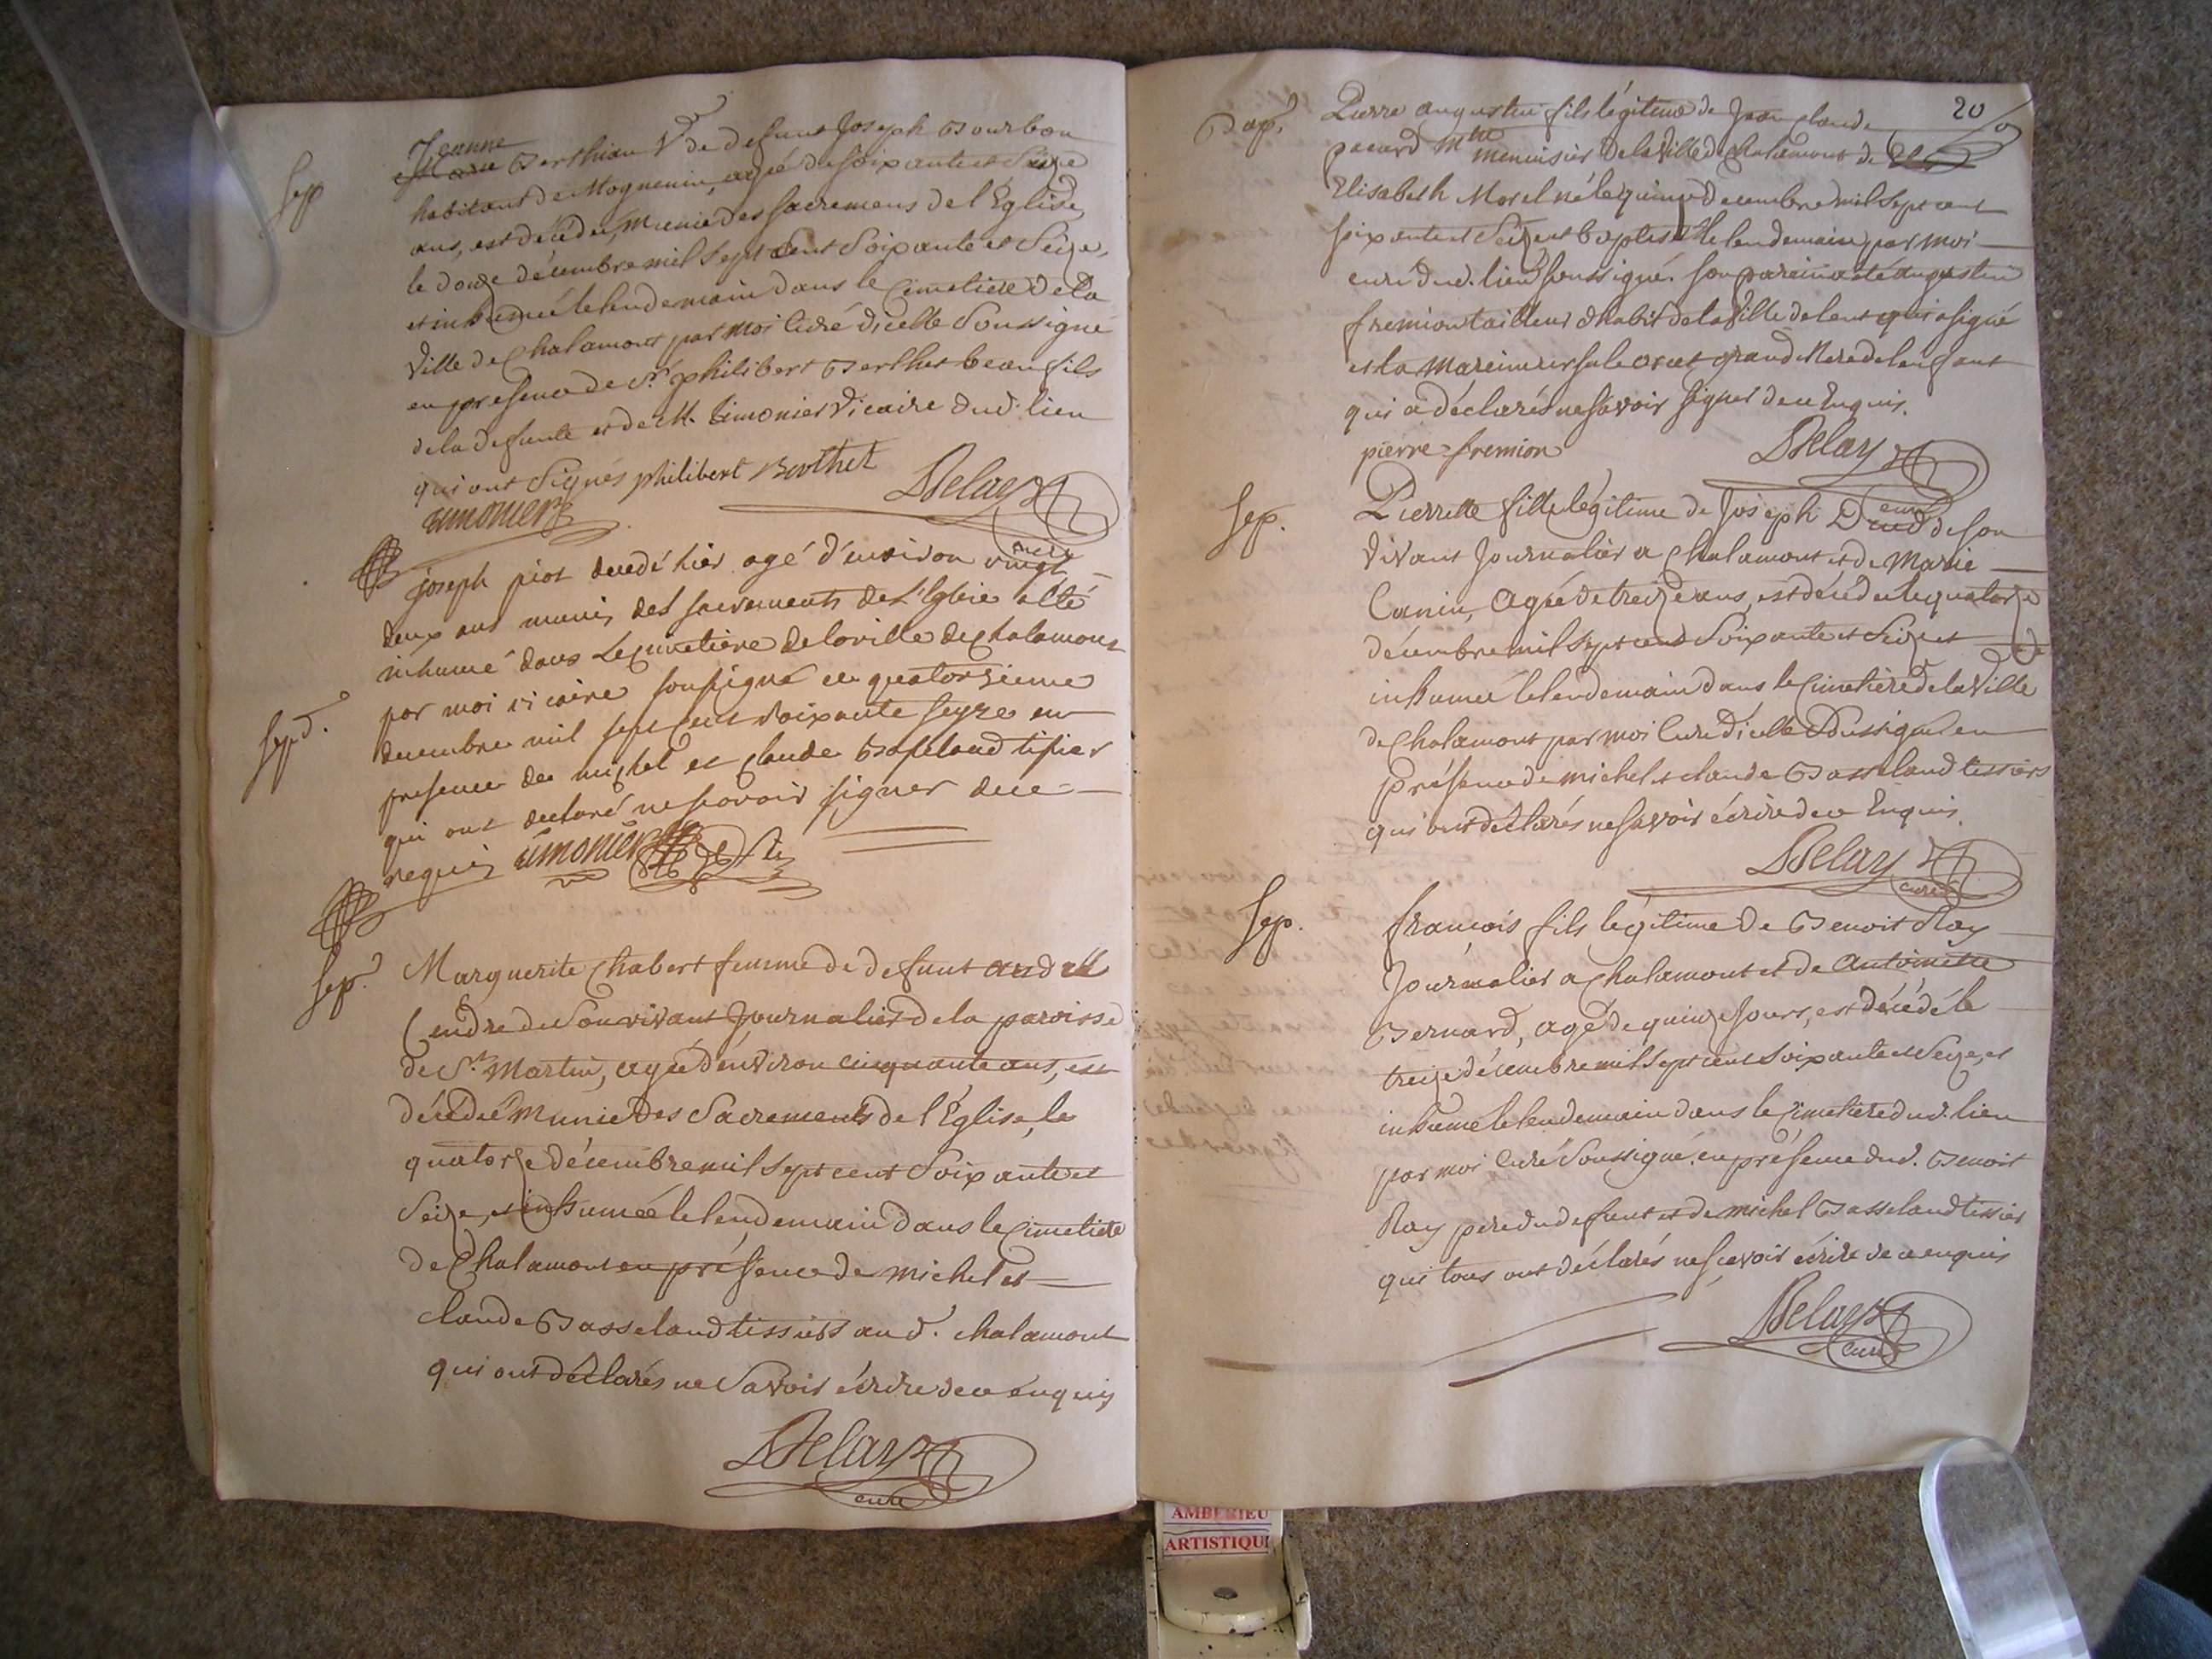 Sep
Jeanne
Berthian Ve de defunt Joseph Bourbon
habitant de Mognenin, agée de soixante et seize
ans, est décédée, munie des sacremens de l'Eglise
le douze décembre mil sept cent soixante et seize,
et inhumée le lendemain dans le Cimetiere de la
Ville de Chalamont par moi curé d'icelle soussigné
en presence de Sr. philibert Berthet beau fils
de la defunte et de M. Timonier Vicaire dud. lieu
qui ont signés philibert Berthet
Delay
timonier
joseph piot decedé hier agé d'environ vingt
deux ans munis des sacrements de L'Eglise a été
inhumé dans Le cimetière de la ville de chalamont
Sepd.
par moi vicaire soussigné ce quatorsieme
decembre mil sept cent soixante seyze en
presence de michel et claude Basseland tisier
qui ont declaré ne scavoir signer de ce
requis timonier
Sep.
Marguerite Chabert femme de defunt andré
Cendre de son vivant Journalier de la paroisse
de St. Martin, agée d'environ cinquante ans, est
décédée Munie des Sacrements de l'Eglise, le
quatorze décembre mil sept cent soixante et
Seize, et inhumée le lendemain dans le Cimetiere
de Chalamont en présence de michel et
claude Basseland tissiers aud. chalamont
qui ont déclarés ne Savoir écrire de ce enquis
Delay
curé
20
Bap.
Pierre augustin fils légitime de Jean claude
pacard Mtre menuisier de la Ville de chalamont de
Elisabeth Morel né le quinze décembre mil sept cent
soixante et Seize et baptisé le lendemain par moi
curé dud. lieu soussigné. son parein a été augustin
fremion tailleur d'habit de la Ville de lent qui a signé
et la mareine ursule grand Mere de l'enfant
qui a déclarés ne savoir signer de ce Enquis.
pierre fremion
Delay
curé
Sep.
Pierrette fille légitime de Joseph de son
vivant Journalier a Chalamont et de Marie
Canin, Agée de treize ans, est décédée le quatorze
décembre mil sept cent soixante et Seize et
inhumée le lendemain dans le Cimetière de la Ville
de Chalamont par moi Curé d'icelle soussigné en
présence de michel et claude Basseland tissiers
qui ont déclarés ne Savoir écrire de ce Enquis.
Delay
curé
Sep.
francois fils légitime de Benoit Ray
Journalier a Chalamont et de Antoinette
Bernard, agé de quinze Jours, est décédé le
treize décembre mil sept cent soixante et Seize, et
inhumé le lendemain dans le Cimetière dud. lieu
par moi Curé soussigné. en présence dud. Benoit
Ray pere du defunt et de michel Basseland tissier
qui tous ont déclarés ne scavoir écrire de ce enquis
Delay
curé
AMBERIEU
ARTISTIQU